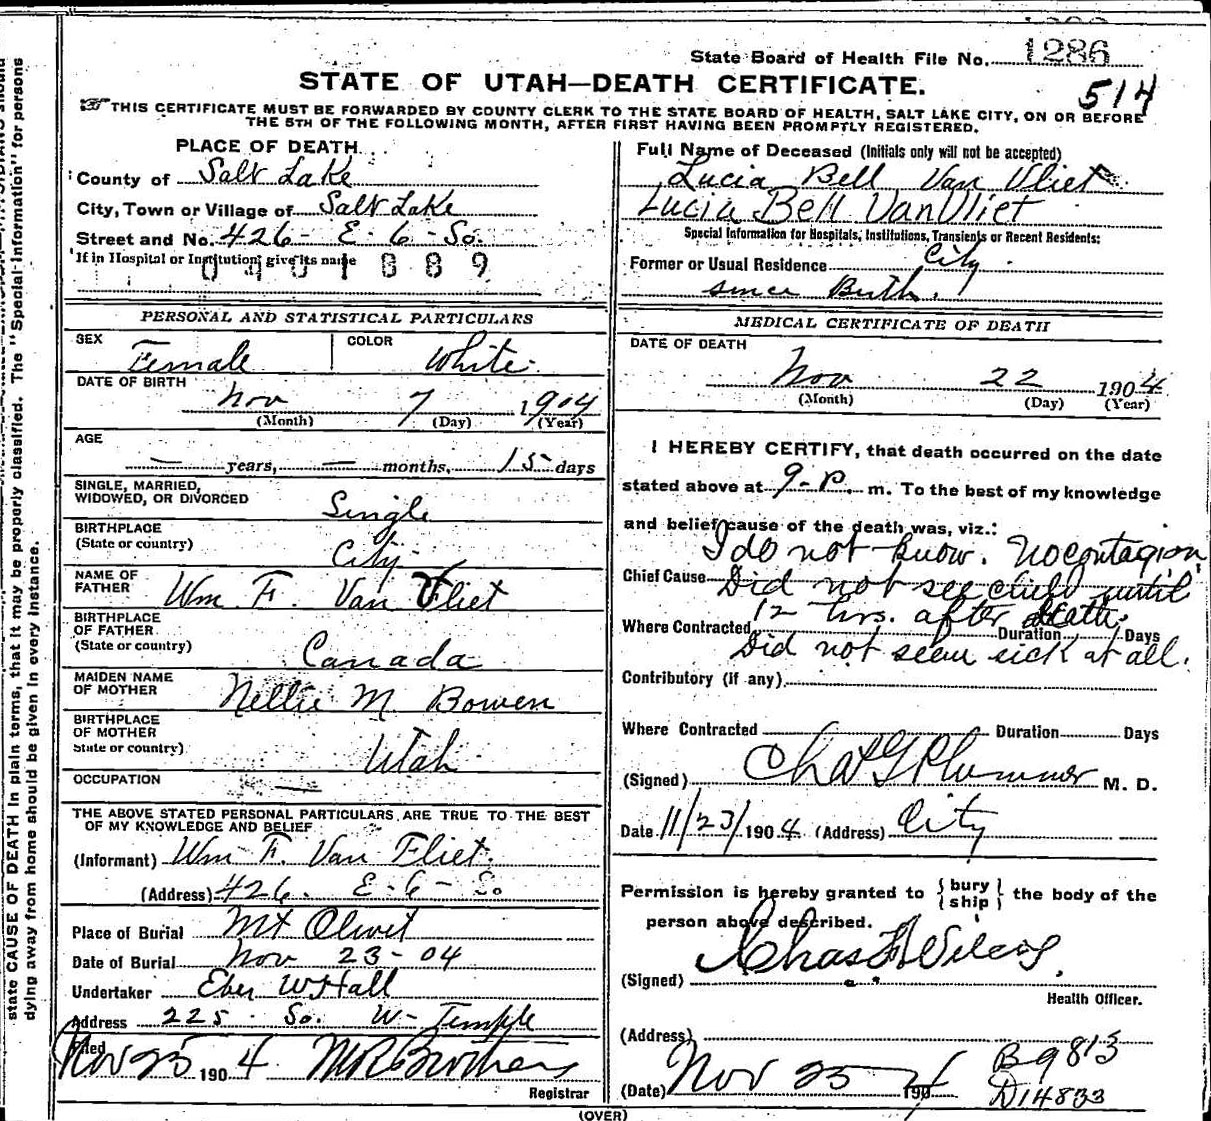 State Board of Health File No. 1286
STATE OF UTAH—DEATH CERTIFICATE.
514
THIS CERTIFICATE MUST BE FORWARDED BY COUNTY CLERK TO THE STATE BOARD OF HEALTH, SALT LAKE CITY, ON OR BEFORE
THE 5TH OF THE FOLLOWING MONTH, AFTER FIRST HAVING BEEN PROMPTLY REGISTERED.
PLACE OF DEATH
County of Salt Lake
City, Town or Village of Salt Lake
Street and No. 426 - E - 6 - So.
If in Hospital or Institution give its name
0401889
Full Name of Deceased (Initials only will not be accepted)
Lucia Bell Van Vliet
Lucia Bell Van Vliet
Special Information for Hospitals, Institutions, Transients or Recent Residents:
Former or Usual Residence City
since Birth.
PERSONAL AND STATISTICAL PARTICULARS
SEX Female COLOR White
DATE OF BIRTH
Nov 7 1904
(Month) (Day) (Year)
AGE
— years, — months, 15 days
SINGLE, MARRIED,
WIDOWED, OR DIVORCED Single
BIRTHPLACE
(State or country) City
NAME OF
FATHER Wm F. Van Vliet
BIRTHPLACE
OF FATHER
(State or country) Canada
MAIDEN NAME
OF MOTHER Nellie M Bowen
BIRTHPLACE
OF MOTHER
State or country) Utah
OCCUPATION —
THE ABOVE STATED PERSONAL PARTICULARS ARE TRUE TO THE BEST
OF MY KNOWLEDGE AND BELIEF
(Informant) Wm F. Van Fliet.
(Address) 426. E - 6 - So
Place of Burial Mt Olivet
Date of Burial Nov 23 - 04
Undertaker Eber W Hall
Address 225 So. W - Temple
Filed Nov 25 1904
Registrar
MEDICAL CERTIFICATE OF DEATH
DATE OF DEATH
Nov 22 1904
(Month) (Day) (Year)
I HEREBY CERTIFY, that death occurred on the date
stated above at 9 - P. m. To the best of my knowledge
and belief cause of the death was, viz.:
I do not know. No contagion
Chief Cause Did not see child until
12 hrs. after death.
Where Contracted Duration Days
Did not seem sick at all.
Contributory (if any)
Where Contracted Duration Days
(Signed) Chas G Plummer M. D.
Date 11/23/1904 (Address) City
Permission is hereby granted to {bury
ship} the body of the
person above described.
(Signed) Chas
Health Officer.
(Address)
(Date) Nov 25 1904
B9813
D14833
(OVER)
state CAUSE OF DEATH in plain terms, that it may be properly classified. The "Special Information" for persons
dying away from home should be given in every instance.